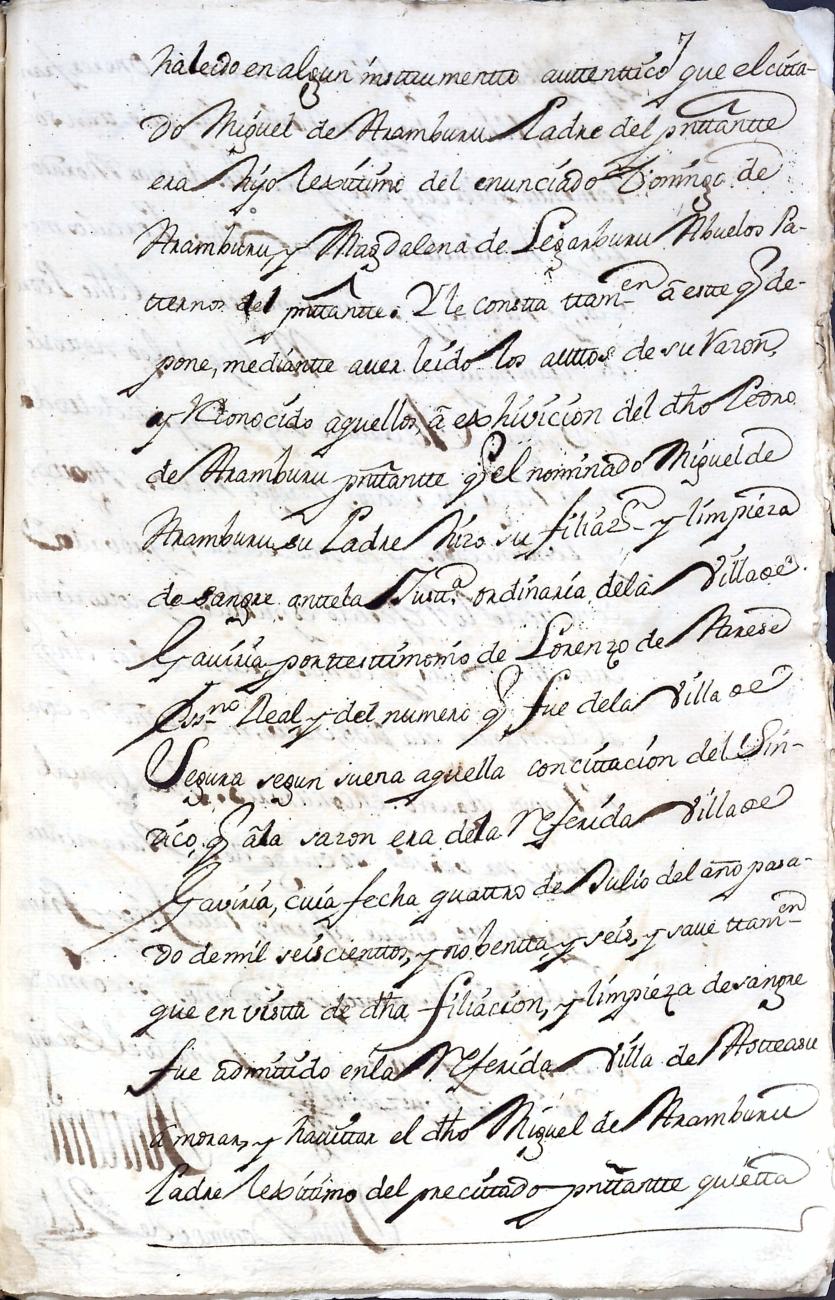 ha leido en algun instrumentto auttenttico que el citta-
do Miguel de Aramburu Padre del pnttantte
era hijo lexitimo del enunciado Domingo de
Aramburu y Magdalena de Legarburu Abuelos Pa-
tternos del pnttantte. Y le constta ttamen a estte q de-
pone, mediantte aver leido los auttos de su razon,
y Reconocido aquellos, a exhivicion del dho Pedro
de Aramburu pnttantte q el nominado Miguel de
Aramburu su Padre hizo su filiazn y limpieza
de sangre antte la Justta ordinaria de la Villa de
Gaviria por testtimonio de Lorenzo de Arrese
Essno Real y del numero q fue de la Villa de
Segura segun suena aquella con cittacion del Sin-
dico, q a la sazon era de la Referida Villa de
Gaviria, cuia fecha quattro de Julio del año pasa-
do de mil seiscienttos, y nobentta, y seis, y save ttamen
que en vistta de dha filiacion, y limpieza de sangre
fue admitido en la Referida Villa de Astteasu
a morar, y havittar el dho Miguel de Aramburu
Padre lexitimo del precittado pnttantte quietta